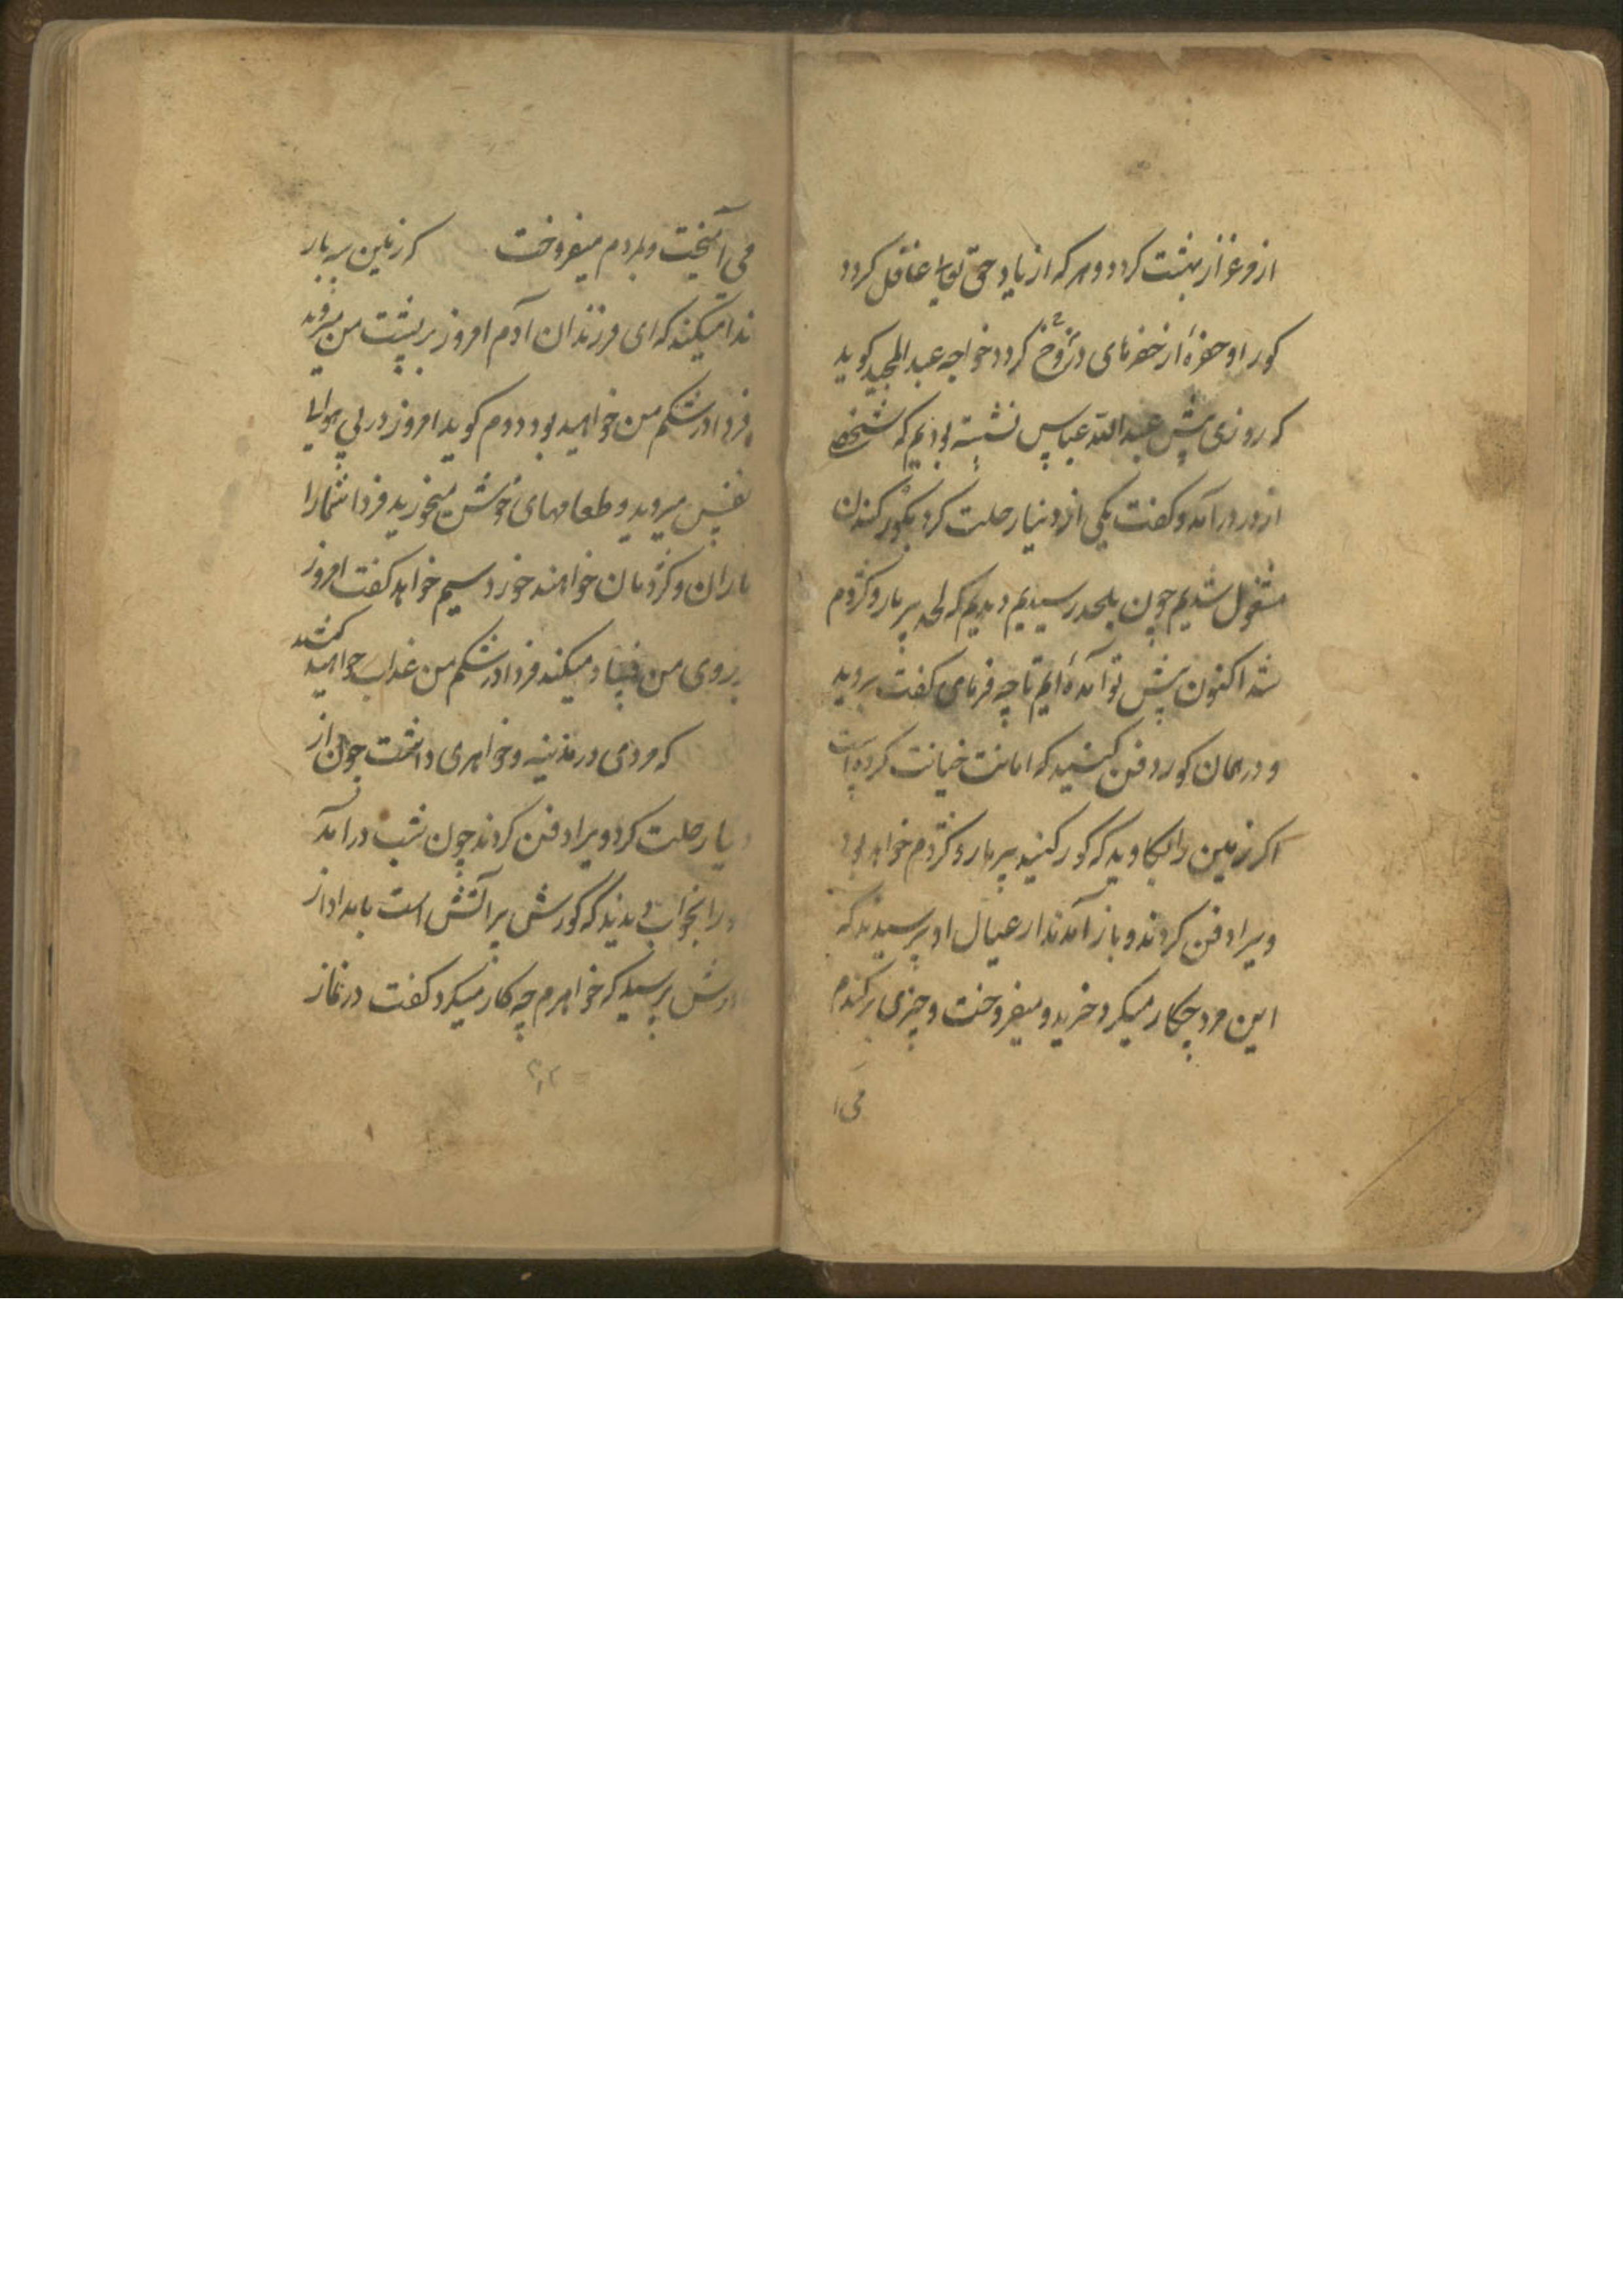 از وغزاز بهشت کردد و هر که از یاد حق تعالی غافل کردد
کور او حفرهٔ از حفرهای دوزخ کردد خواجه عبدالمجید کوید
که روزی پیش عبدالله عباس نشسته بودیم که شخصی
از در درآمد و کفت یکی از دنیا رحلت کرد بکور کندن
مشغول شدیم چون بلحد رسیدیم دیدیم که لحد پر مار و کژدم
شد اکنون پیش تو آمدهٔ ایم تا چه فرمای کفت بروید
و در همان کور دفن کنید که امانت خیانت کرده است
اکر زمین را بکاوید که کور کنید پر مار و کژدم خواهد بود
ویرا دفن کردند و باز آمدند از عیال او پرسیدند که
این مرد چکار میکرد خرید و میفروخت و چیزی بر کندم
می آ
می آمیخت و بمردم میفروخت که زمین سه بار
ندا میکند که ای فرزندان آدم امروز بر پشت من میروید
فردا در شکم من خواهید بود دوم کوید امروز در پی هوای
نفس میروید و طعامهای خوش میخورید فردا شمارا
ماران و کژدمان خواهند خورد سیم خواهد کفت امروز
بر روی من فساد میکنید فردا در شکم من عذاب خواهید کشید
که مردی در مدینه و خواهری داشت چون از
دنیا رحلت کرد ویرا دفن کردند چون شب درآمد
ورا بخواب دیدند که کورش پر آتش است بامداد از
مادرش پرسید که خواهرم چه کار میکرد کفت در نماز